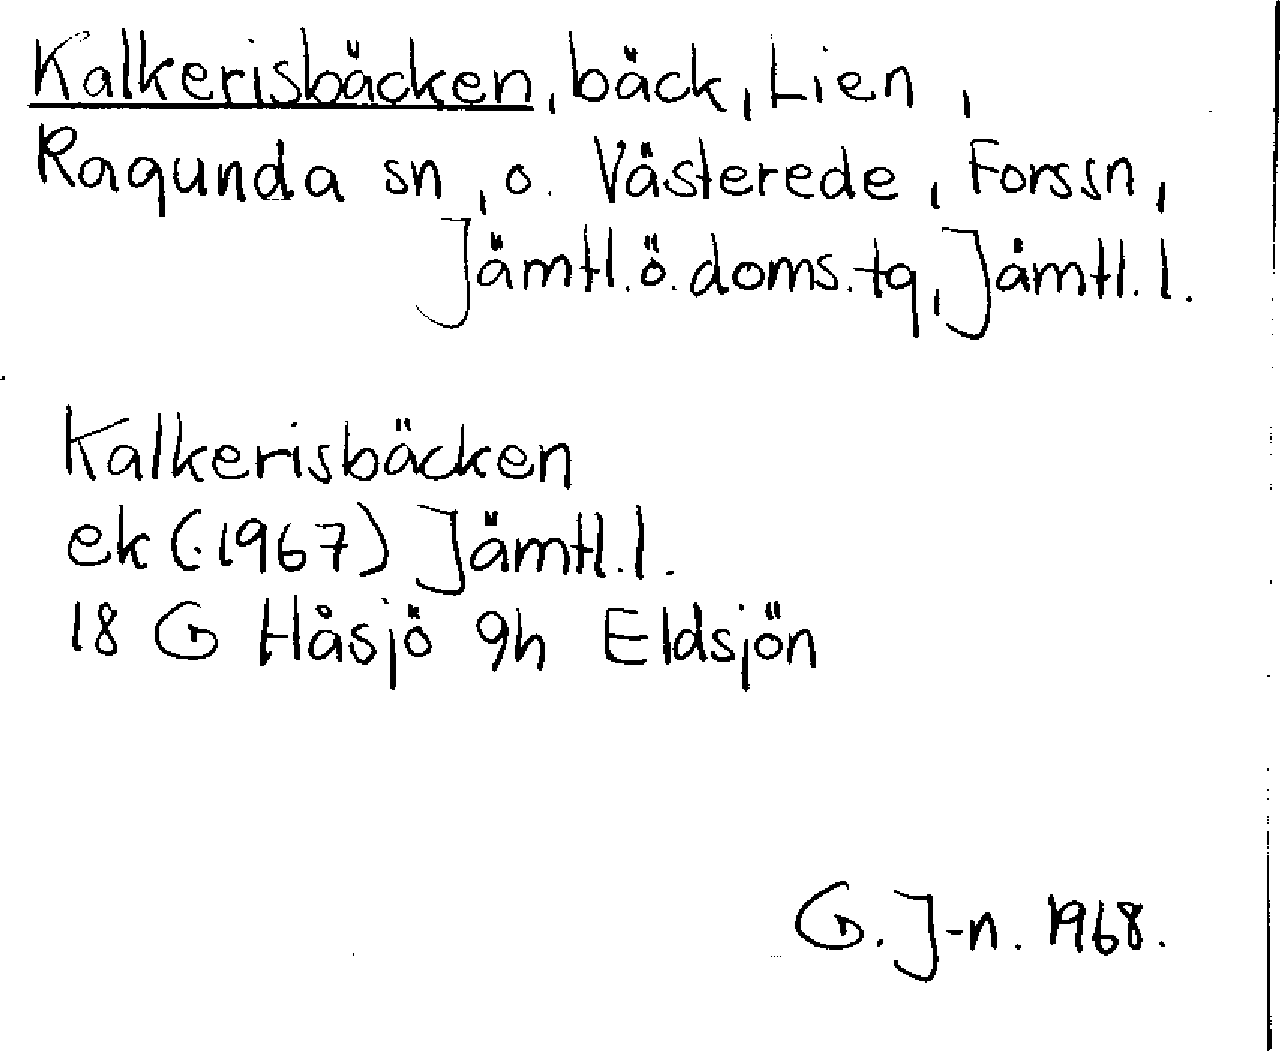 Kalkerisbäcken, bäck, Lien,
Ragunda sn, o. Västerede, Fors sn,
Jämtl. ö. doms. tg, Jämtl. l.
Kalkerisbäcken
ek (1967) Jämtl. l.
18 G Håsjö 9h Eldsjön
G. J-n. 1968.